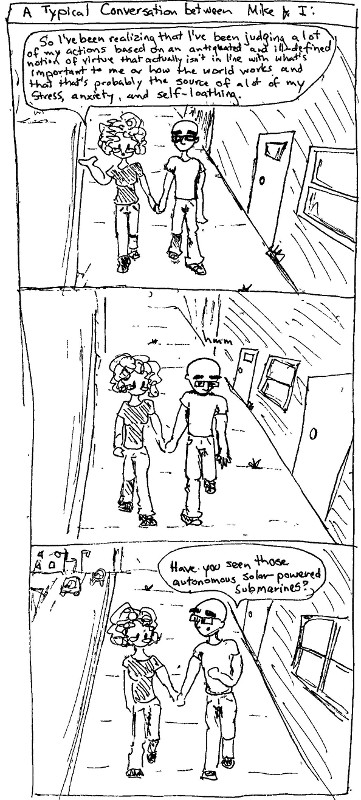 A Typical Conversation between Mike & I:
So I've been realizing that I've been judging a lot
of my actions based on an antiquated and ill-defined
notion of virtue that actually isn't in line with what's
important to me or how the world works and
that that's probably the source of a lot of my
stress, anxiety, and self-loathing.
hmm
Have you seen those
autonomous solar-powered
submarines?